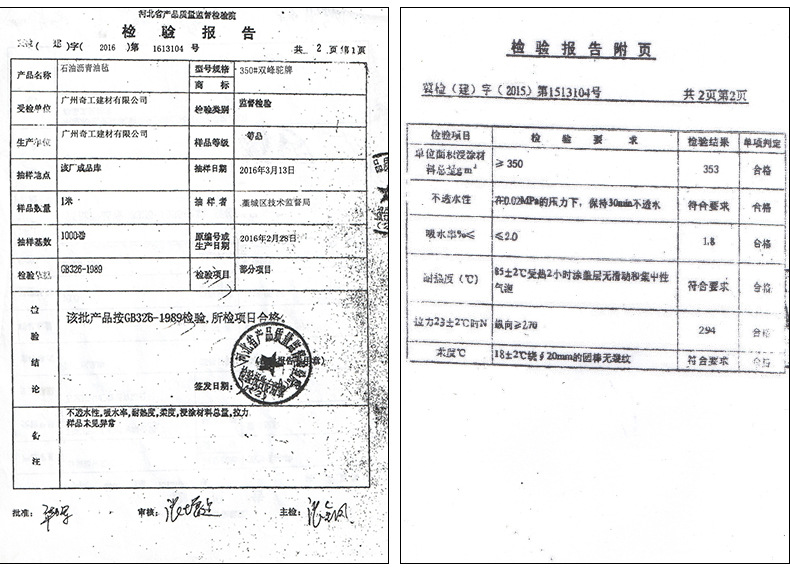 河北省产品质量监督检验院
检 验 报 告
(建)字(2016)第 1613104 号 共 2 页 第1页
产品名称 石油沥青油毡 型号规格 350#双峰驼牌
商 标
受检单位 广州奇工建材有限公司 检验类别 监督检验
生产单位 广州奇工建材有限公司 样品等级 等品
抽样地点 该厂成品库 抽样日期 2016年3月13日
样品数量 1米 抽 样 者 藁城区技术监督局
抽样基数 1000卷 原编号或生产日期 2016年2月28日
检验依据 GB326-1989 检验项目 部分项目
检验结论
该批产品按GB326-1989检验,所检项目合格。
签发日期:
备注
不透水性,吸水率,耐热度,柔度,浸涂材料总量,拉力
样品未见异常
批准: 审核: 主检:
检 验 报 告 附 页
质检(建)字(2015)第1513104号 共 2页第2页
检验项目 检 验 要 求 检验结果 单项判定
单位面积浸涂材料总量g/m² ≥350 353 合格
不透水性 在0.02MPa的压力下,保持30min不透水 符合要求 合格
吸水率%≤ ≤2.0 1.8 合格
耐热度(℃) 85±2℃受热2小时涂盖层无滑动和集中性气泡 符合要求 合格
拉力23±2℃时N 纵向≥270 294 合格
柔度℃ 18±2℃绕∮20mm的圆棒无裂纹 符合要求 合格